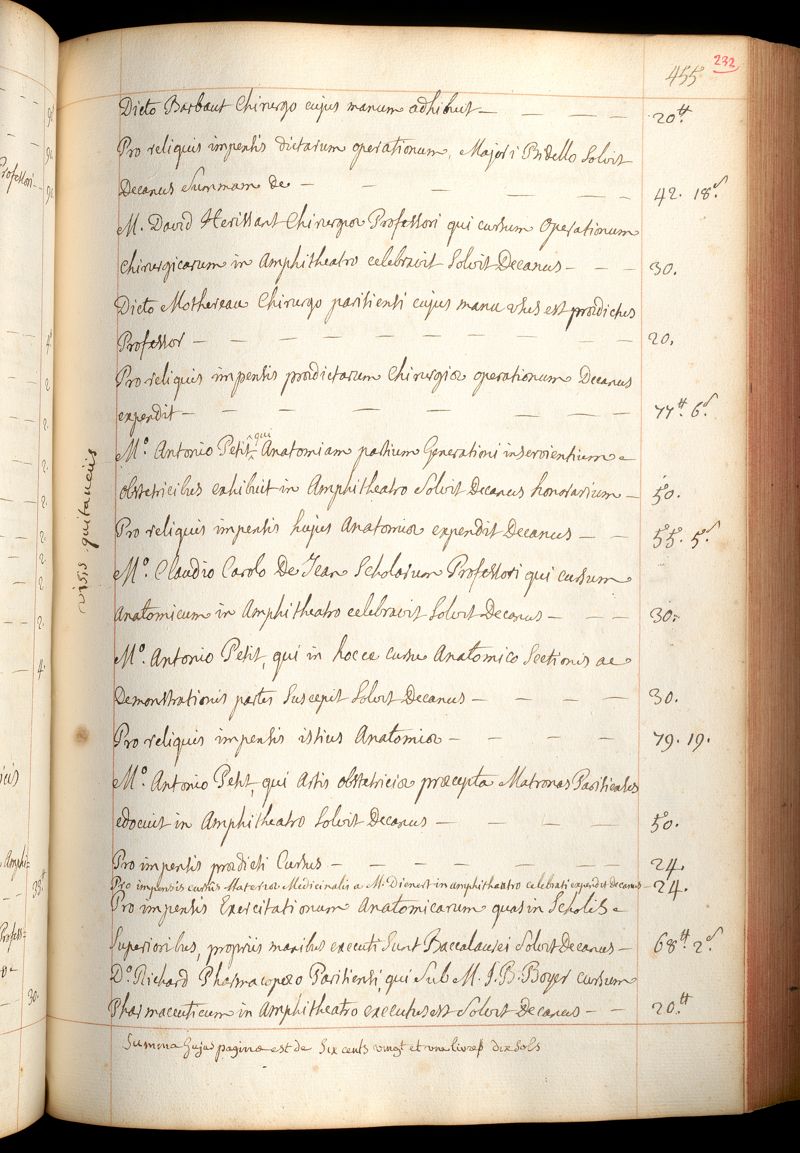 455
232
Dicto Barbaut Chirurgo cujus manum adhibuit — — — — 20.tt
Pro reliquis impensis dictarum operationum, Majori Bidello Solvit
Decanus Summam de — — — — — — 42. 18.s
M. David Herissant Chirurgiæ Professori qui cursum Operationum
Chirurgicarum in Amphitheatro celebravit Solvit Decanus — — — 30.
Dicto Mothereau Chirurgo parisiensi cujus manu usus est prædictus
Professor — — — — — — — — 20.
Pro reliquis impensis prædictarum Chirurgiæ operationum Decanus
expendit — — — — — — — — 77.tt 6.s
M.o Antonio Petit qui Anatomiam partium Generationi inservientium
obstetricibus exhibuit in Amphitheatro Solvit Decanus honorarium — 50.
Pro reliquis impensis hujus Anatomiæ expendit Decanus — — 55. 5.s
M.o Claudio Carolo De Jean Scholarum Professori qui cursum
Anatomicum in Amphitheatro celebravit Solvit Decanus — — — 30.
M.o Antonio Petit, qui in hocce cursu Anatomico Sectionis ac
Demonstrationis partes Suscepit Solvit Decanus — — — — 30.
Pro reliquis impensis istius Anatomiæ — — — — 79. 19.
M.o Antonio Petit, qui Artis obstetriciæ præcepta Matronas Parisienses
edocuit in Amphitheatro Solvit Decanus — — — — 50.
Pro impensis prædicti Cursus — — — — — — — 24.
Pro impensis cursus Materiæ Medicinalis a M. Dienert in amphitheatro celebrati expendit decanus — 24.
Pro impensis Exercitationum Anatomicarum quas in Scholis
Superioribus, propriis manibus executi Sunt Baccalaurei Solvit Decanus — 68.tt 2.s
D.o Richard Pharmacopæo Parisiensi, qui Sub M. J. B. Boyer cursum
Pharmaceuticum in Amphitheatro executus est Solvit Decanus — — 20.tt
Summa hujus paginæ est de Six cents vingt et une livres dix sols
visis quitanciis